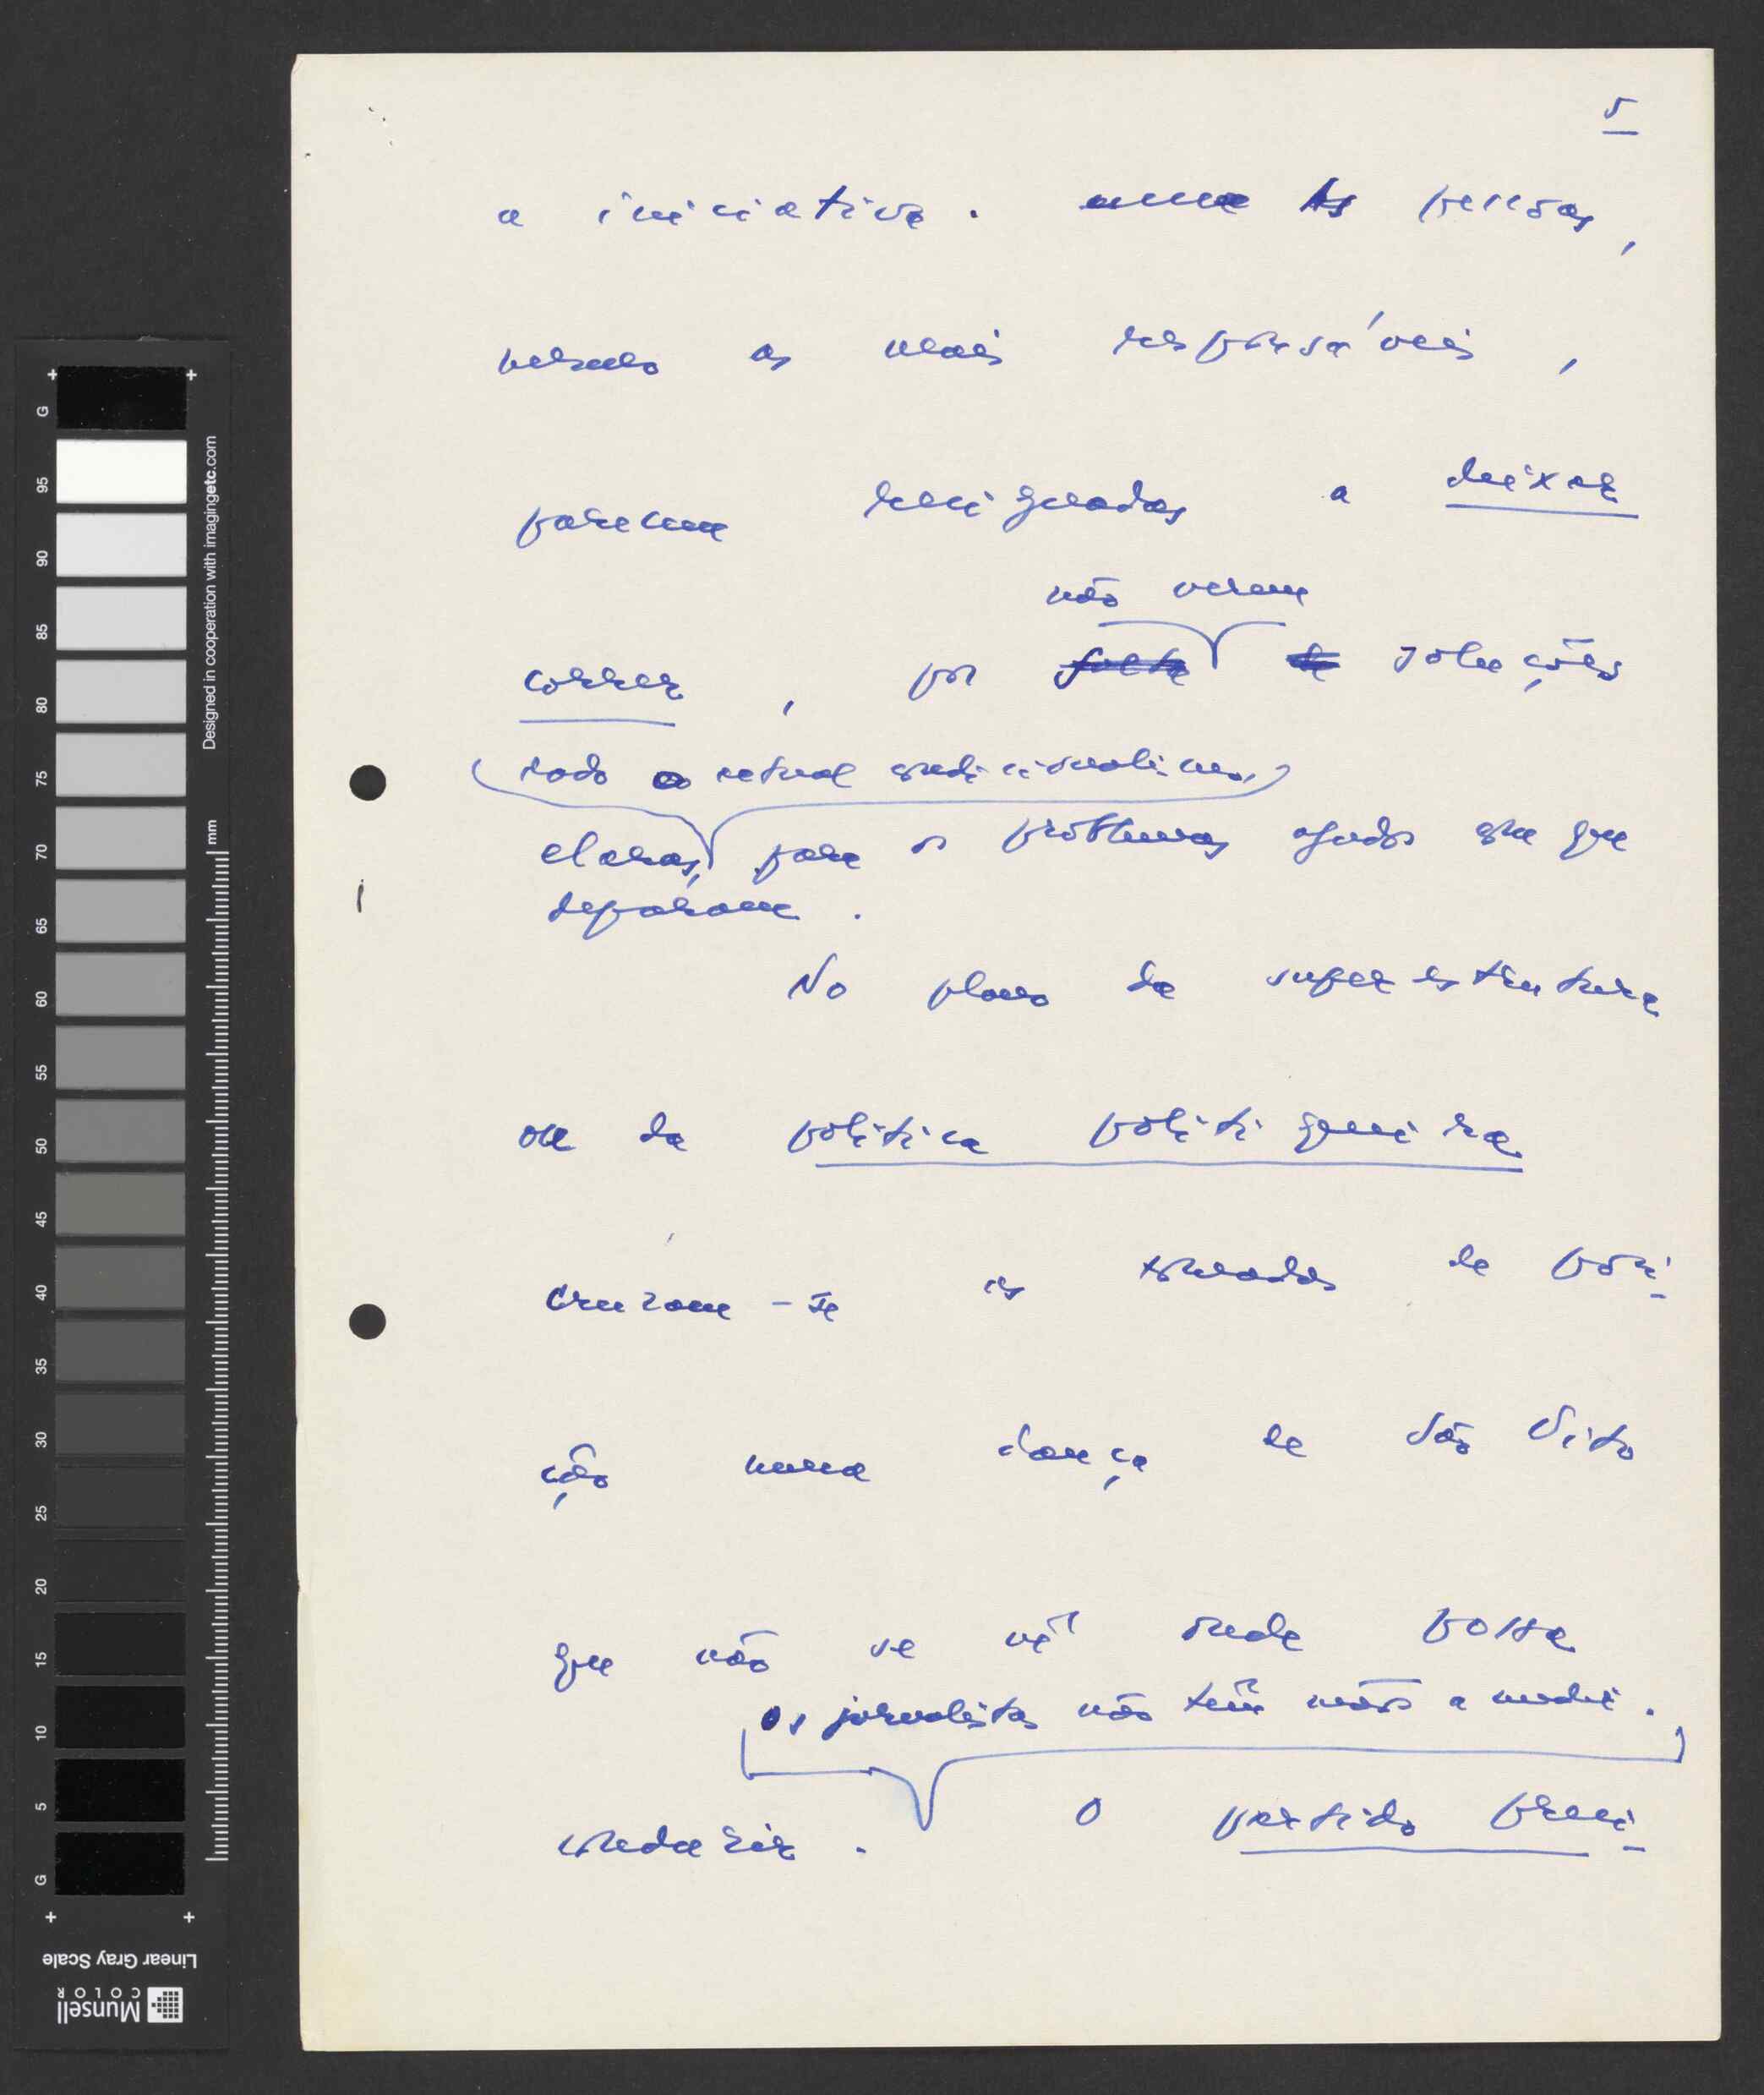 5
a iniciativa. uma As pessoas,
mesmo as mais responsáveis,
parecem resignadas a deixar
não verem
correr, por falta de soluções
dado o actual condicionalismo,
claras, para os problemas agudos com que
deparam.
No plano da superestrutura
ou da política politiqueira
cruzam-se as tomadas de posi-
ção numa dança de São Vito
que não se vê onde possa
os jornalistas não têm mãos a medir.
conduzir. O partido presi-
G 95 90 85 80 75 70 65 60 55 50 45 40 35 30 25 20 15 10 5 G
Designed in cooperation with imagingetc.com
mm
Linear Gray Scale
Munsell
COLOR